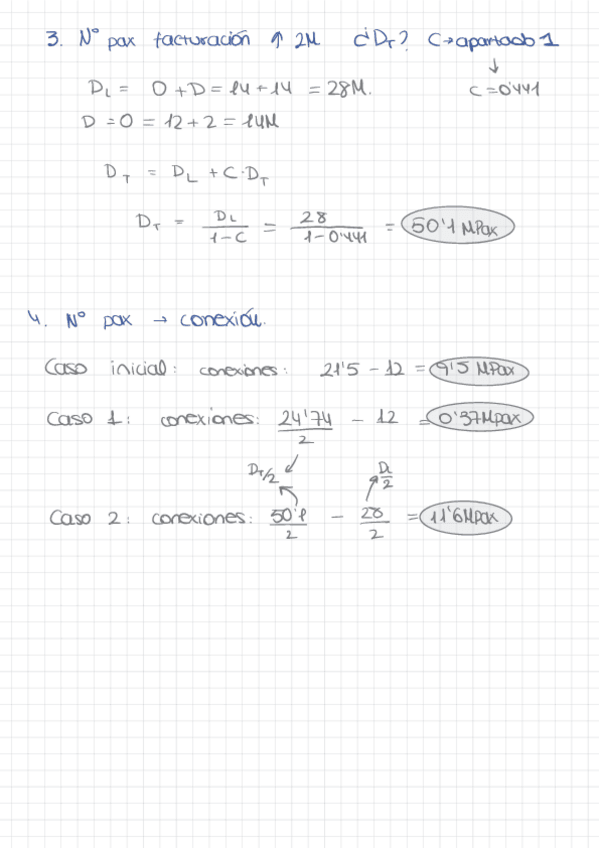 3. Nº pax facturación ↑ 2M ¿DT? C→apartado 1
↓
DL = O + D = 14 + 14 = 28M. C = 0'441
D = O = 12 + 2 = 14M
DT = DL + C · DT
DT = DL / 1-C = 28 / 1-0'441 = 50'1 MPax
4. Nº pax → conexión.
Caso inicial: conexiones: 21'5 - 12 = 9'5 MPax
Caso 1: conexiones: 24'74 / 2 - 12 = 0'37Mpax
DT/2 DL/2
Caso 2: conexiones: 50'1 / 2 - 28 / 2 = 11'6MPax